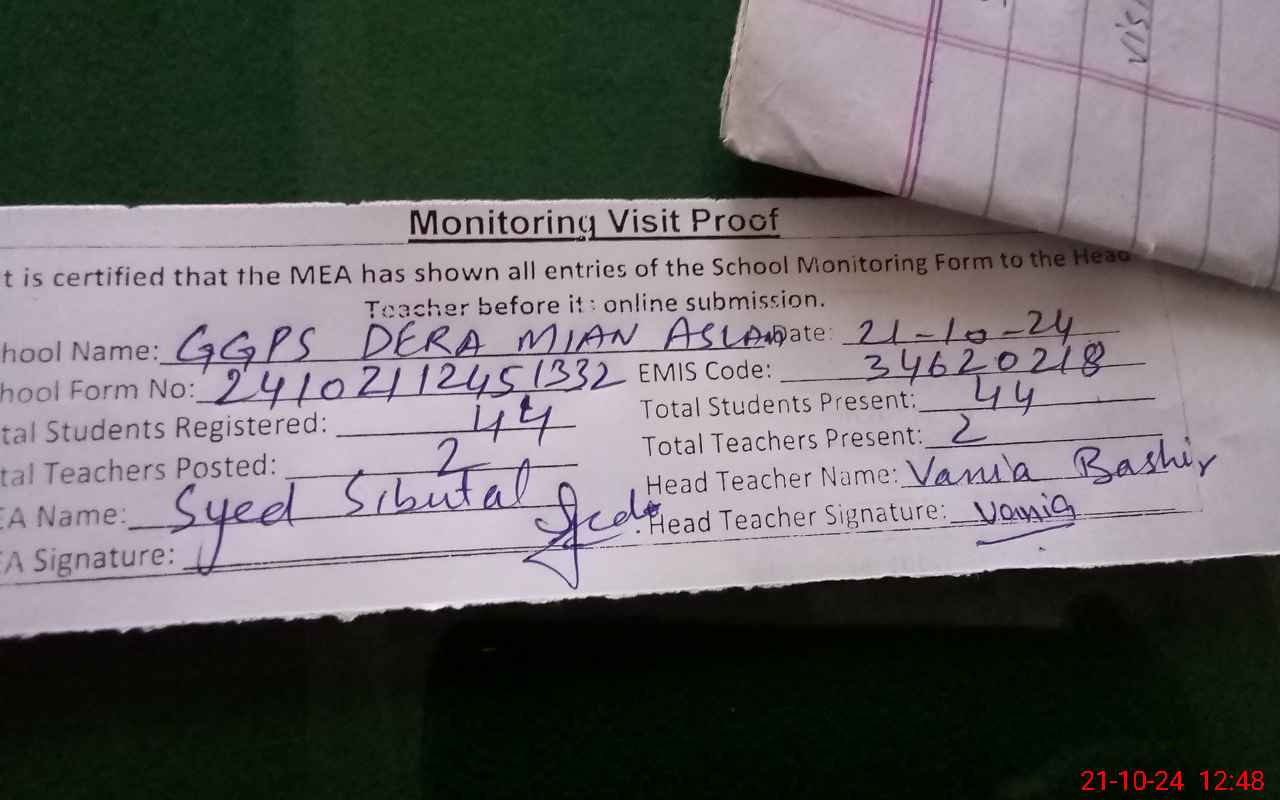 Monitoring Visit Proof
t is certified that the MEA has shown all entries of the School Monitoring Form to the Head
Teacher before its online submission.
hool Name: GGPS DERA MIAN ASLAM Date: 21-10-24
hool Form No: 24102112451332 EMIS Code: 34620218
tal Students Registered: 44 Total Students Present: 44
tal Teachers Posted: 2 Total Teachers Present: 2
EA Name: Syed Sibutal Head Teacher Name: Vania Bashir
EA Signature: Head Teacher Signature: Vania
21-10-24 12:48